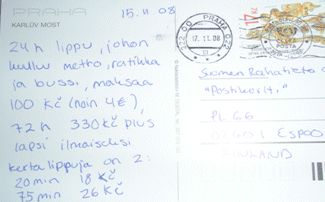 PRAHA
KARLŮV MOST
15.11.08
24h lippu, johon
kuuluu metro, ratikka
ja bussi, maksaa
100 Kč (noin 4€),
72h 330 Kč plus
lapsi ilmaiseksi
kertalippuja on 2:
20 min 18 Kč
75 min 26 Kč
PRAHA 022
17.11.08
Suomen Rahatieto
"Postikortit."
PL 66
02601 ESPOO
FINLAND